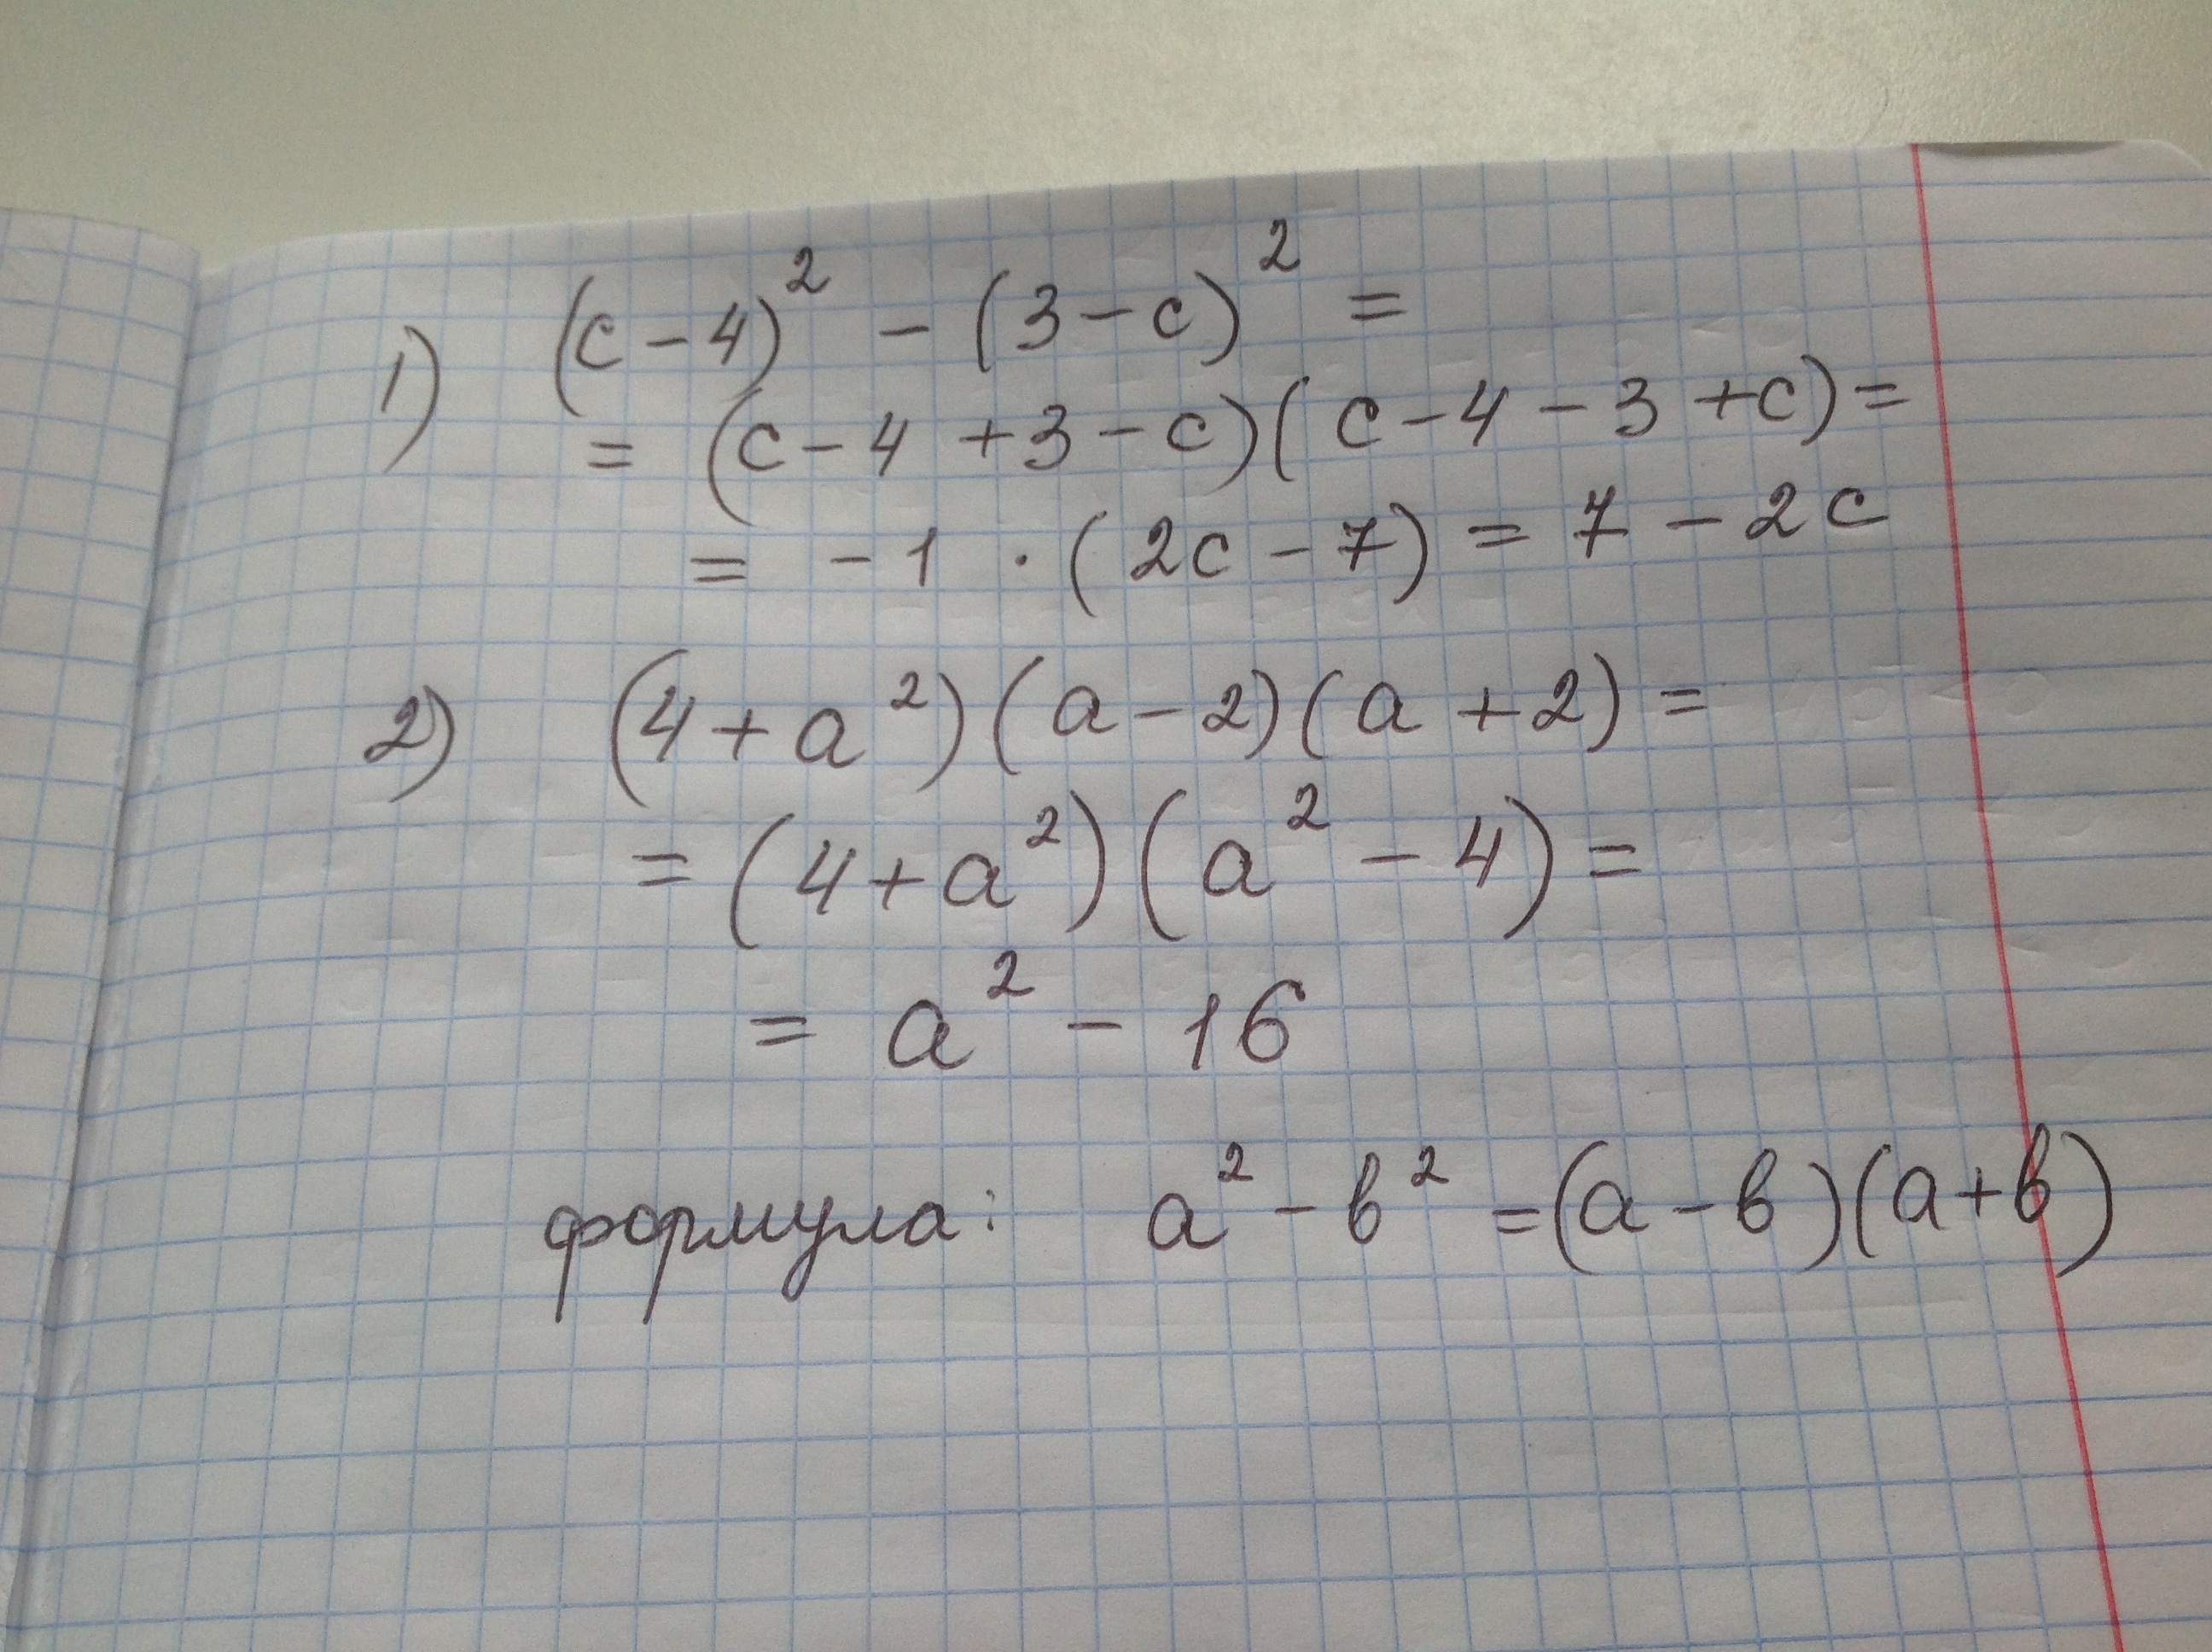 1) (c-4)² - (3-c)² =
= (c-4+3-c)(c-4-3+c)=
= -1 · (2c-7) = 7-2c
2) (4+a²)(a-2)(a+2)=
= (4+a²)(a²-4)=
= a² - 16
формула: a² - b² =(a-b)(a+b)